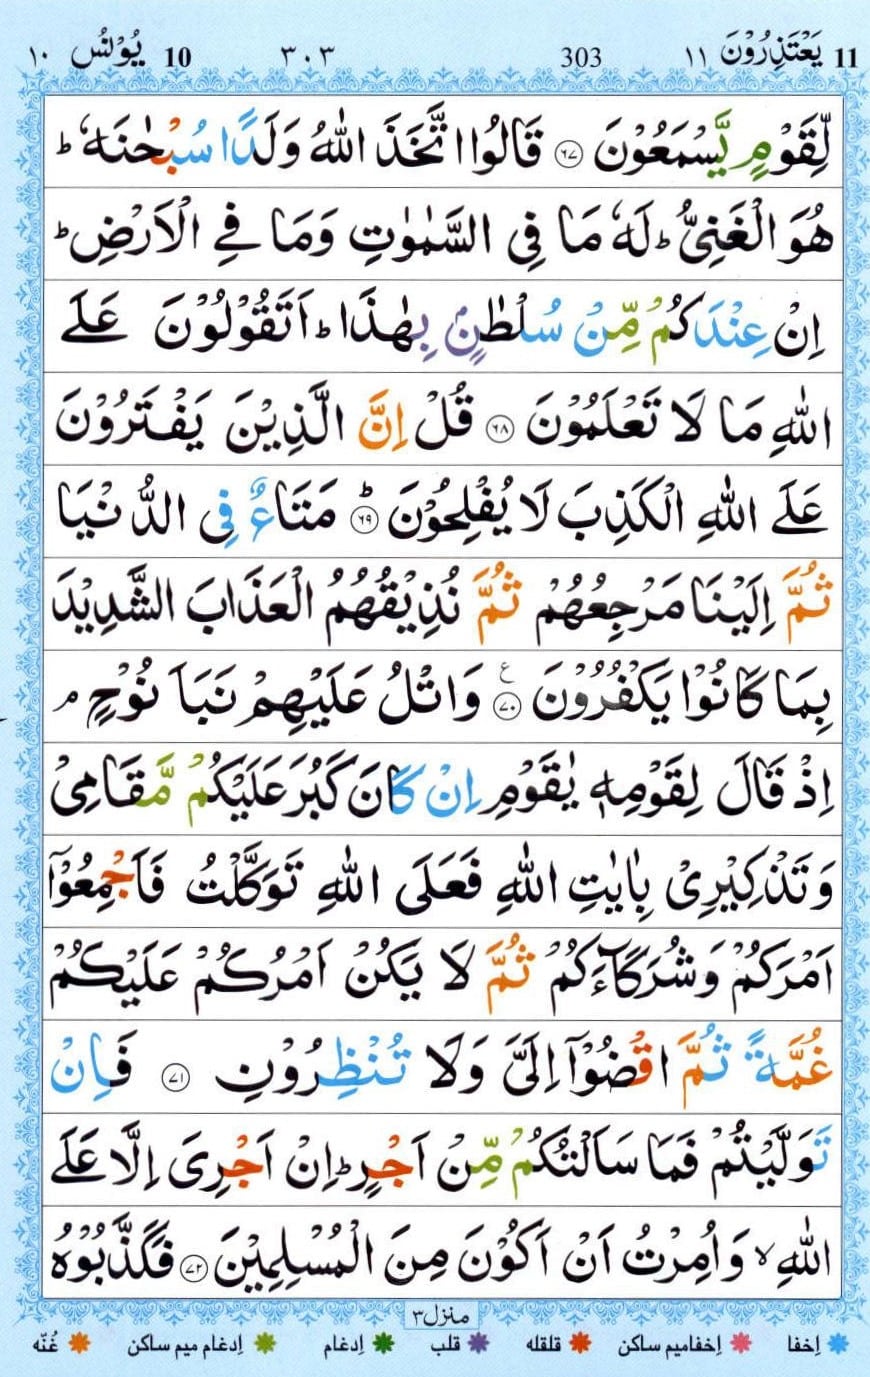 11 يَعْتَذِرُوْنَ ١١ 303 ٣٠٣ 10 يُوْنُسُ ١٠
لِّقَوْمٍ يَّسْمَعُوْنَ ﴿٦٧﴾ قَالُوا اتَّخَذَ اللّٰهُ وَلَدًا سُبْحٰنَهٗ ؕ
هُوَ الْغَنِيُّ ؕ لَهٗ مَا فِي السَّمٰوٰتِ وَمَا فِي الْاَرْضِ ؕ
اِنْ عِنْدَكُمْ مِّنْ سُلْطٰنٍۭ بِهٰذَا ؕ اَتَقُوْلُوْنَ عَلَى
اللّٰهِ مَا لَا تَعْلَمُوْنَ ﴿٦٨﴾ قُلْ اِنَّ الَّذِيْنَ يَفْتَرُوْنَ
عَلَى اللّٰهِ الْكَذِبَ لَا يُفْلِحُوْنَ ؕ ﴿٦٩﴾ مَتَاعٌ فِي الدُّنْيَا
ثُمَّ اِلَيْنَا مَرْجِعُهُمْ ثُمَّ نُذِيْقُهُمُ الْعَذَابَ الشَّدِيْدَ
بِمَا كَانُوْا يَكْفُرُوْنَ ﴿٧٠﴾ ع وَاتْلُ عَلَيْهِمْ نَبَاَ نُوْحٍ ۘ
اِذْ قَالَ لِقَوْمِهٖ يٰقَوْمِ اِنْ كَانَ كَبُرَ عَلَيْكُمْ مَّقَامِيْ
وَتَذْكِيْرِيْ بِاٰيٰتِ اللّٰهِ فَعَلَى اللّٰهِ تَوَكَّلْتُ فَاَجْمِعُوْٓا
اَمْرَكُمْ وَشُرَكَآءَكُمْ ثُمَّ لَا يَكُنْ اَمْرُكُمْ عَلَيْكُمْ
غُمَّةً ثُمَّ اقْضُوْٓا اِلَيَّ وَلَا تُنْظِرُوْنِ ﴿٧١﴾ فَاِنْ
تَوَلَّيْتُمْ فَمَا سَاَلْتُكُمْ مِّنْ اَجْرٍ ؕ اِنْ اَجْرِيَ اِلَّا عَلَى
اللّٰهِ ۙ وَاُمِرْتُ اَنْ اَكُوْنَ مِنَ الْمُسْلِمِيْنَ ﴿٧٢﴾ فَكَذَّبُوْهُ
منزل ٣
اِخفا اِخفامیم ساکن قلقله قلب اِدغام اِدغام میم ساکن غُنّه